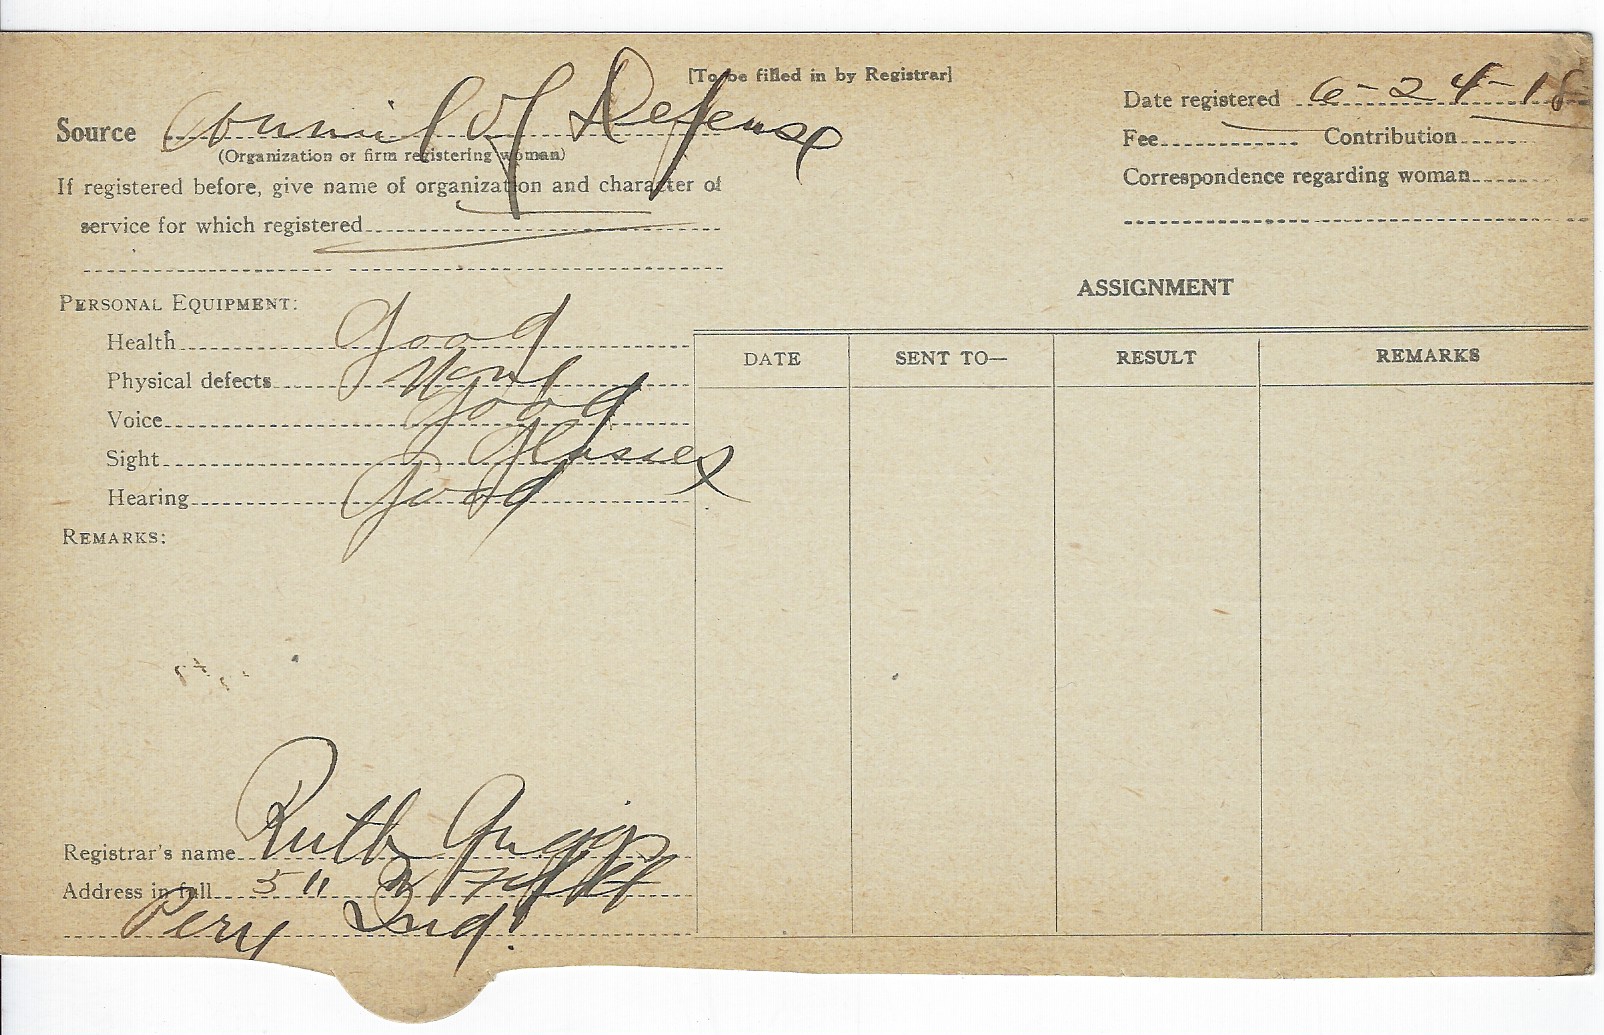 [To be filled in by Registrar]
Source Council of Defense
(Organization or firm registering woman)
If registered before, give name of organization and character of
service for which registered
Date registered 6-24-18
Fee Contribution
Correspondence regarding woman
PERSONAL EQUIPMENT:
Health Good
Physical defects None
Voice Good
Sight Glasses
Hearing Good
REMARKS:
ASSIGNMENT
DATE SENT TO— RESULT REMARKS
Registrar's name Ruth
Address in full 511 W
Ind.